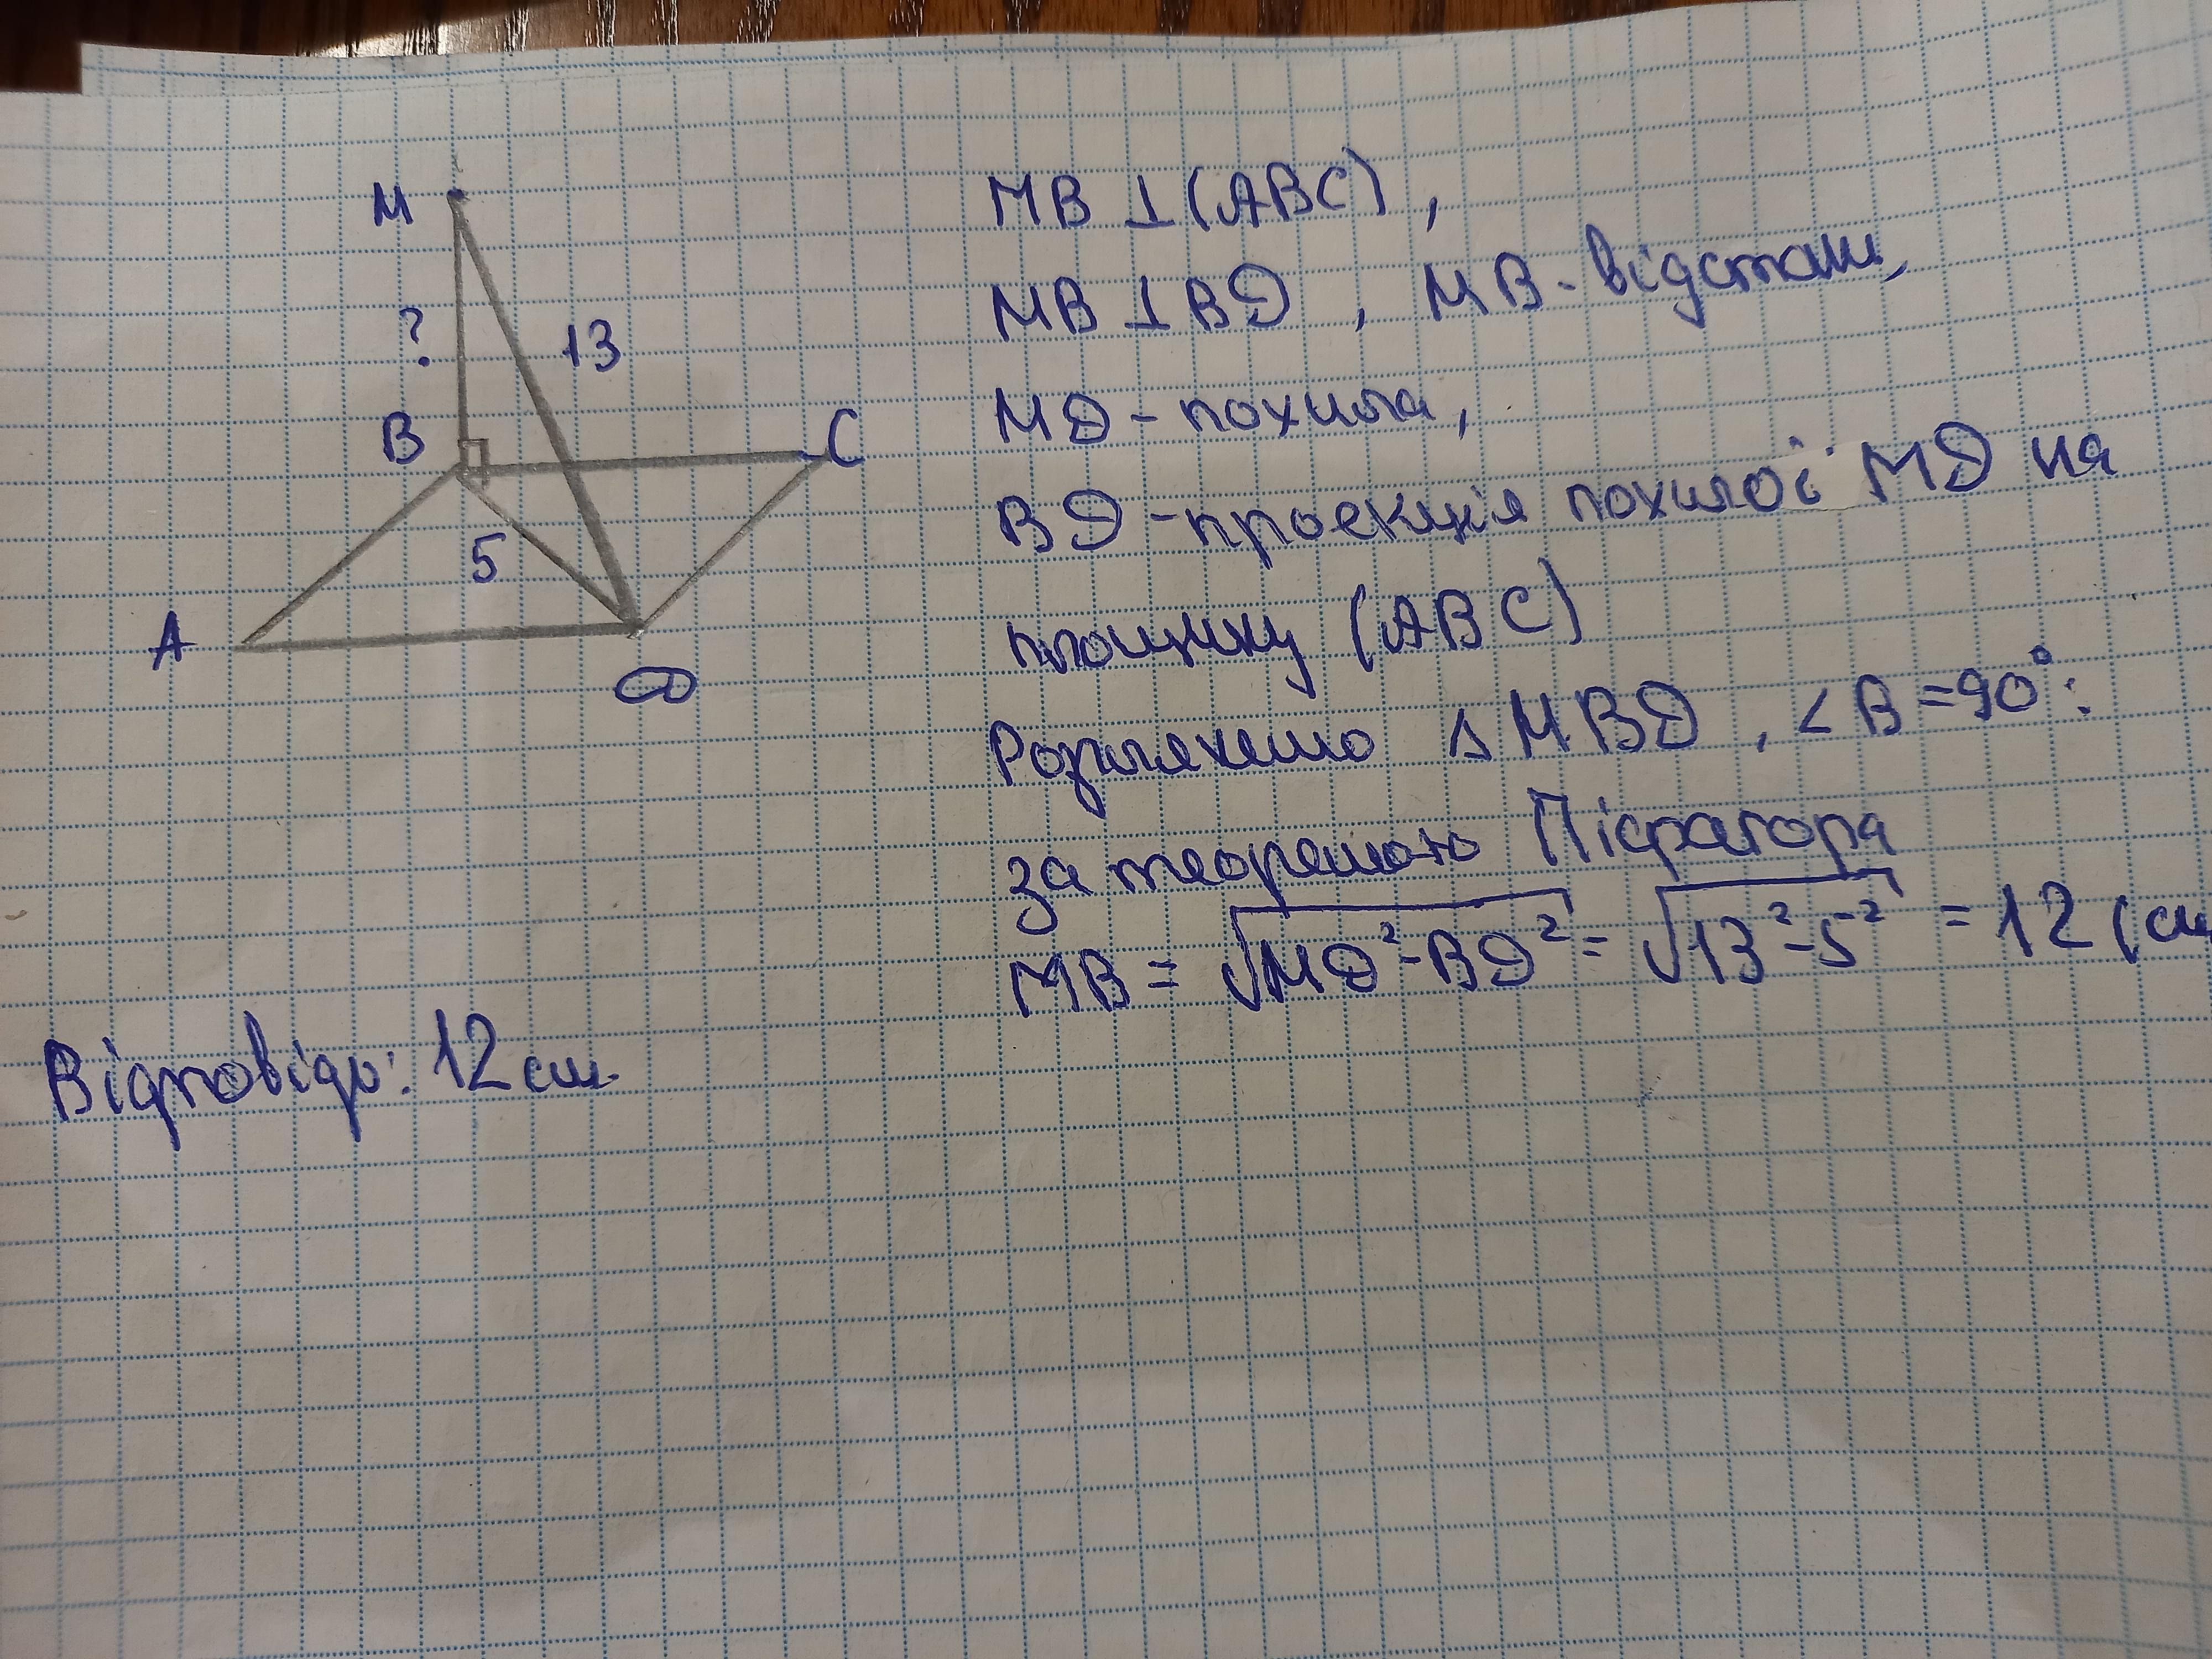 M
?
13
B
C
5
A
D
MB ⊥ (ABC),
MB ⊥ BD, MB - відстань,
MD - похила,
BD - проекція похилої MD на
площину (ABC)
Розглянемо △ MBD, ∠B = 90°:
за теоремою Піфагора
MB = √MD² - BD² = √13² - 5² = 12 (см
Відповідь: 12 см.